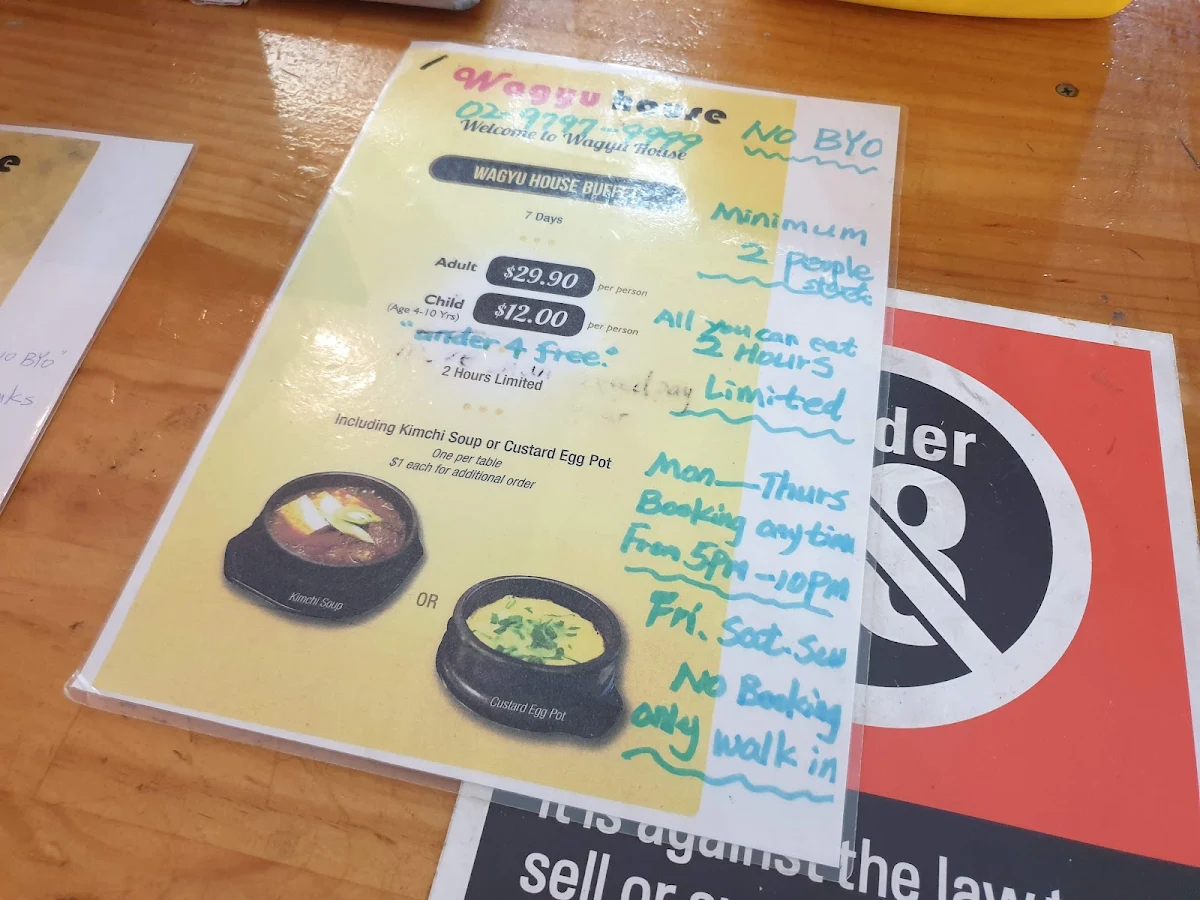 Wagyu house
02-9797-9999
Welcome to Wagyu House
WAGYU HOUSE BUFFET
7 Days
Adult $29.90 per person
Child $12.00 per person
(Age 4-10 Yrs)
"under 4 free."
2 Hours Limited
Including Kimchi Soup or Custard Egg Pot
One per table
$1 each for additional order
Kimchi Soup
OR
Custard Egg Pot
No BYO
Minimum
2 people
All you can eat
2 Hours
Limited
Mon—Thurs
Booking anytime
From 5PM-10PM
Fri. Sat. Sun
No Booking
only walk in
e
BYO"
der
8
It is against the law t
sell or